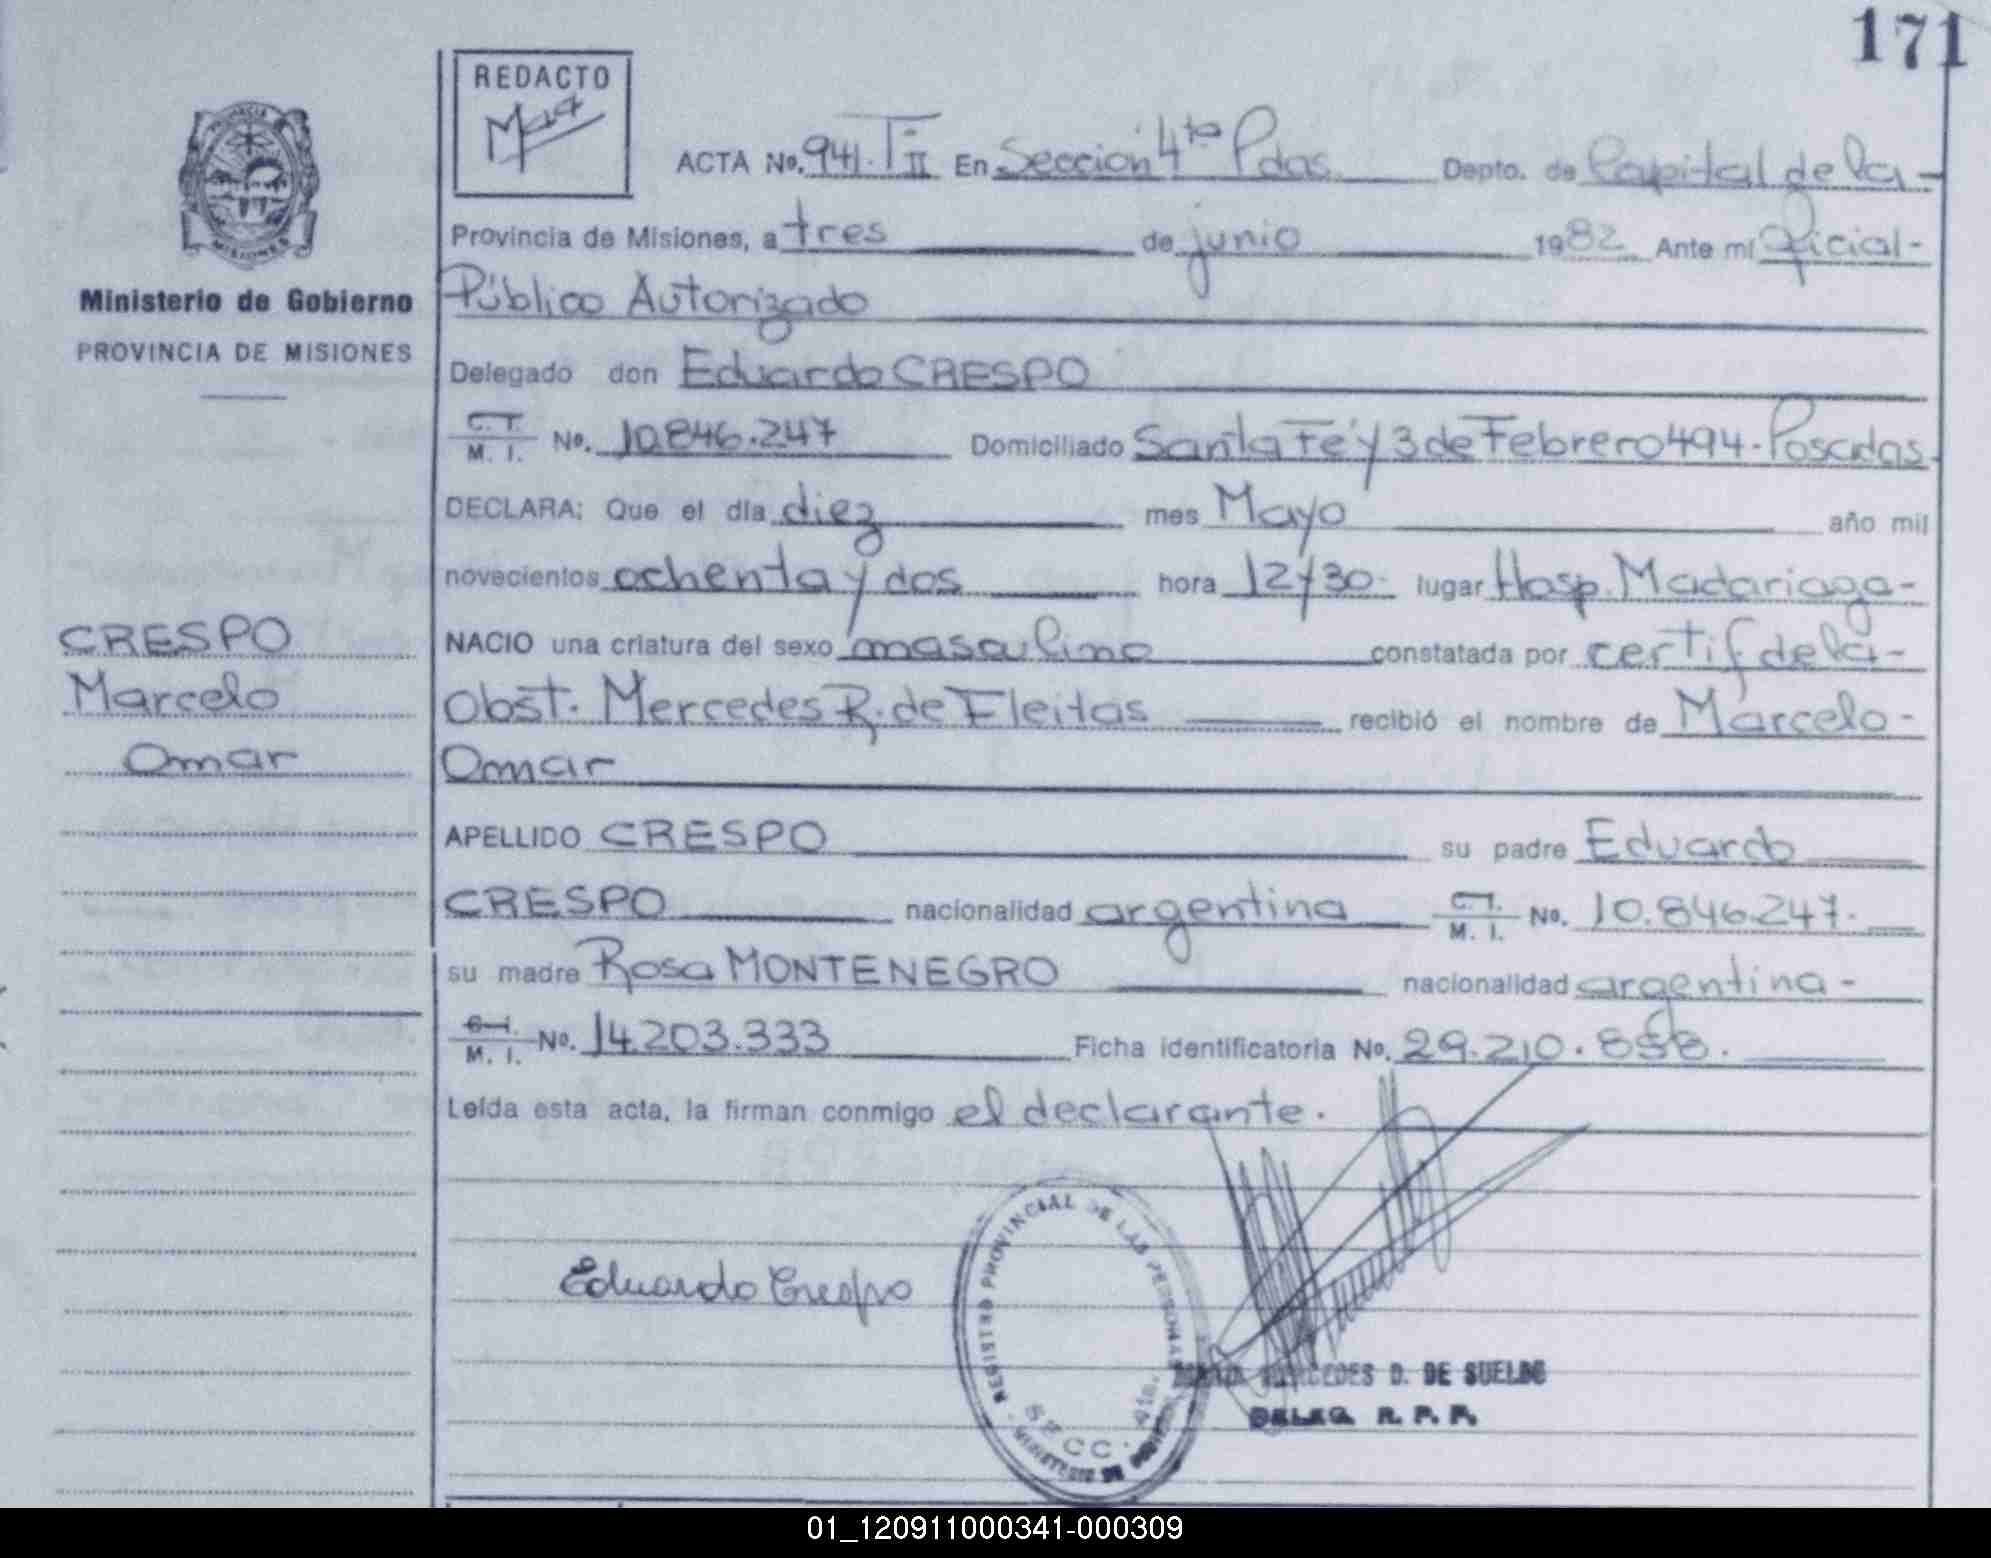 171
REDACTO
ACTA No. 941. T II En Sección 4ta Pdas. Depto. de Capital de la -
Provincia de Misiones, a tres de junio 1982 Ante mi Oficial -
Público Autorizado
Ministerio de Gobierno
PROVINCIA DE MISIONES
Delegado don Eduardo CRESPO
C.I. M. I. No. 10.846.247 Domiciliado Santa Fe y 3 de Febrero 494 - Posadas
DECLARA: Que el día diez mes Mayo año mil
novecientos ochenta y dos hora 12 y 30 - lugar Hosp. Madariaga -
CRESPO
Marcelo
Omar
NACIO una criatura del sexo masculino constatada por certif de la -
Obst. Mercedes R. de Fleitas recibió el nombre de Marcelo -
Omar
APELLIDO CRESPO su padre Eduardo
CRESPO nacionalidad argentina C.I. M. I. No. 10.846.247.
su madre Rosa MONTENEGRO nacionalidad argentina -
C.I. M. I. No. 14.203.333 Ficha identificatoria No. 29.210.858.
Leída esta acta, la firman conmigo el declarante.
Eduardo Crespo
REGISTRO PROVINCIAL DE LAS PERSONAS
SECC. 4ta.
MINISTERIO DE
MERCEDES D. DE SUELDO
DELEG. R. P. P.
01_120911000341-000309